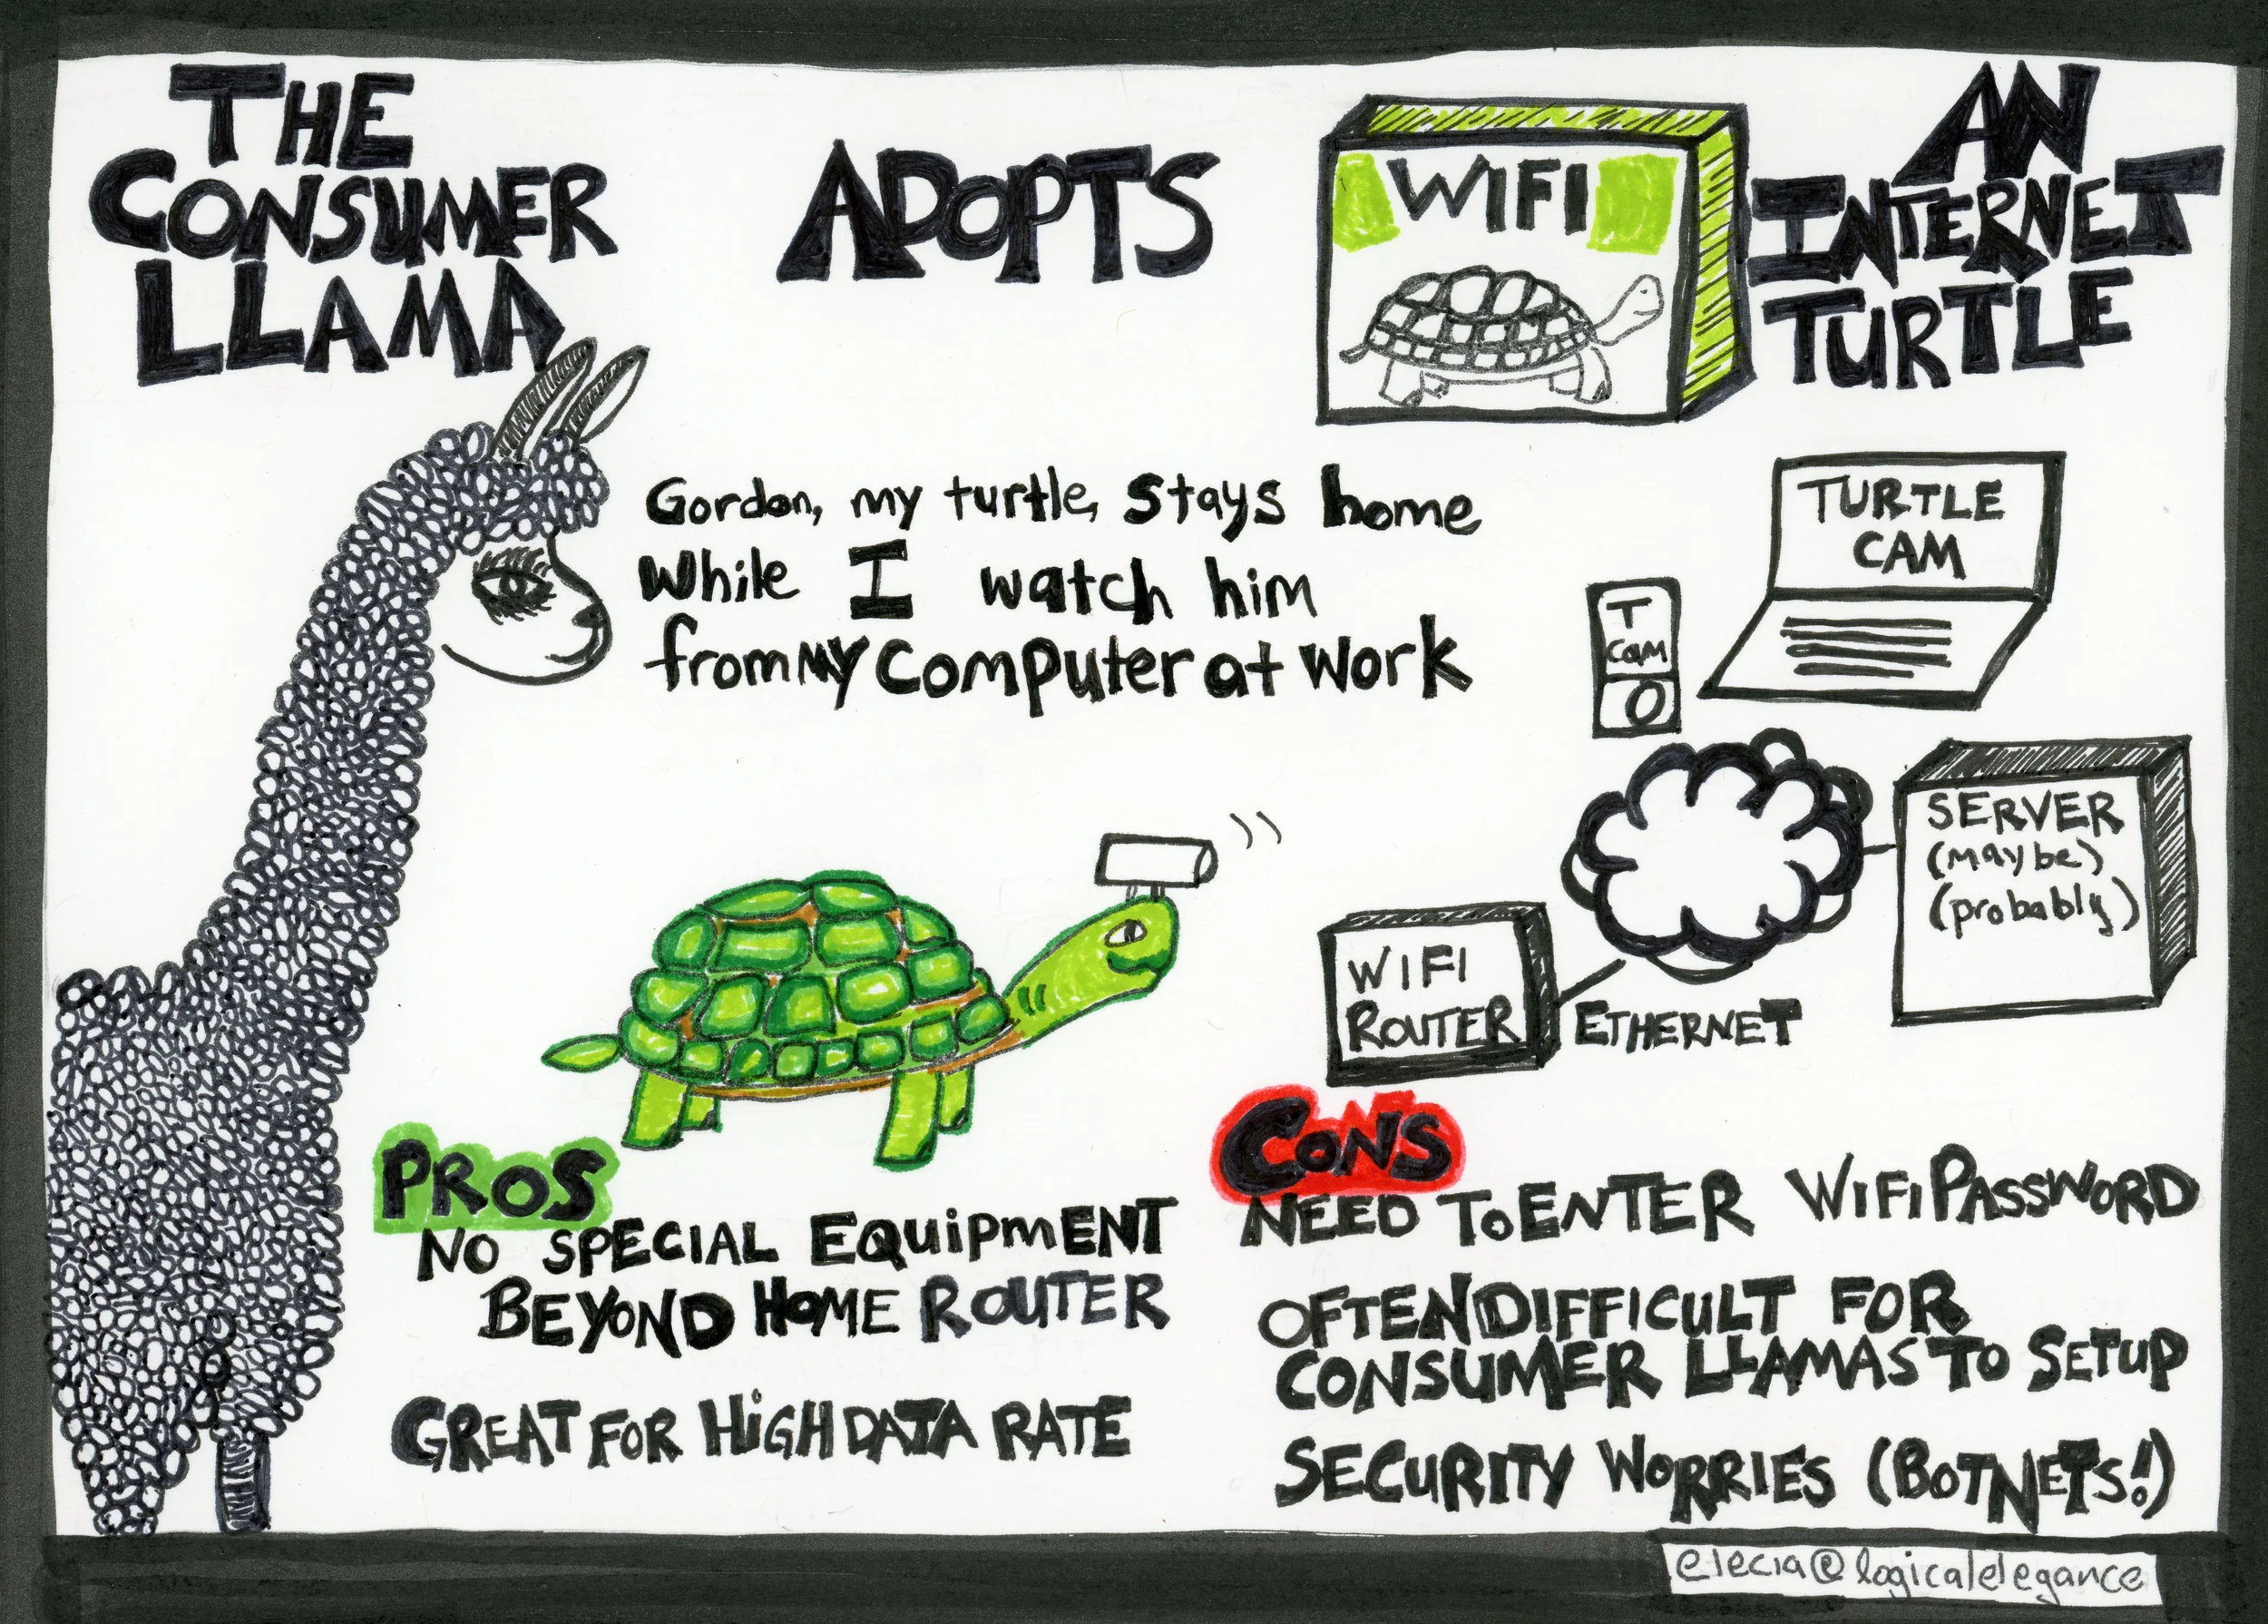 THE
CONSUMER
LLAMA
ADOPTS
WIFI
AN
INTERNET
TURTLE
Gordon, my turtle, stays home
While I watch him
from my computer at work
TURTLE
CAM
T
Cam
SERVER
(maybe)
(probably)
WIFI
ROUTER
ETHERNET
PROS
NO SPECIAL EQUIPMENT
BEYOND HOME ROUTER
GREAT FOR HIGH DATA RATE
CONS
NEED TO ENTER WIFI PASSWORD
OFTEN DIFFICULT FOR
CONSUMER LLAMAS TO SETUP
SECURITY WORRIES (BOTNETS!)
elecia@logicalelegance